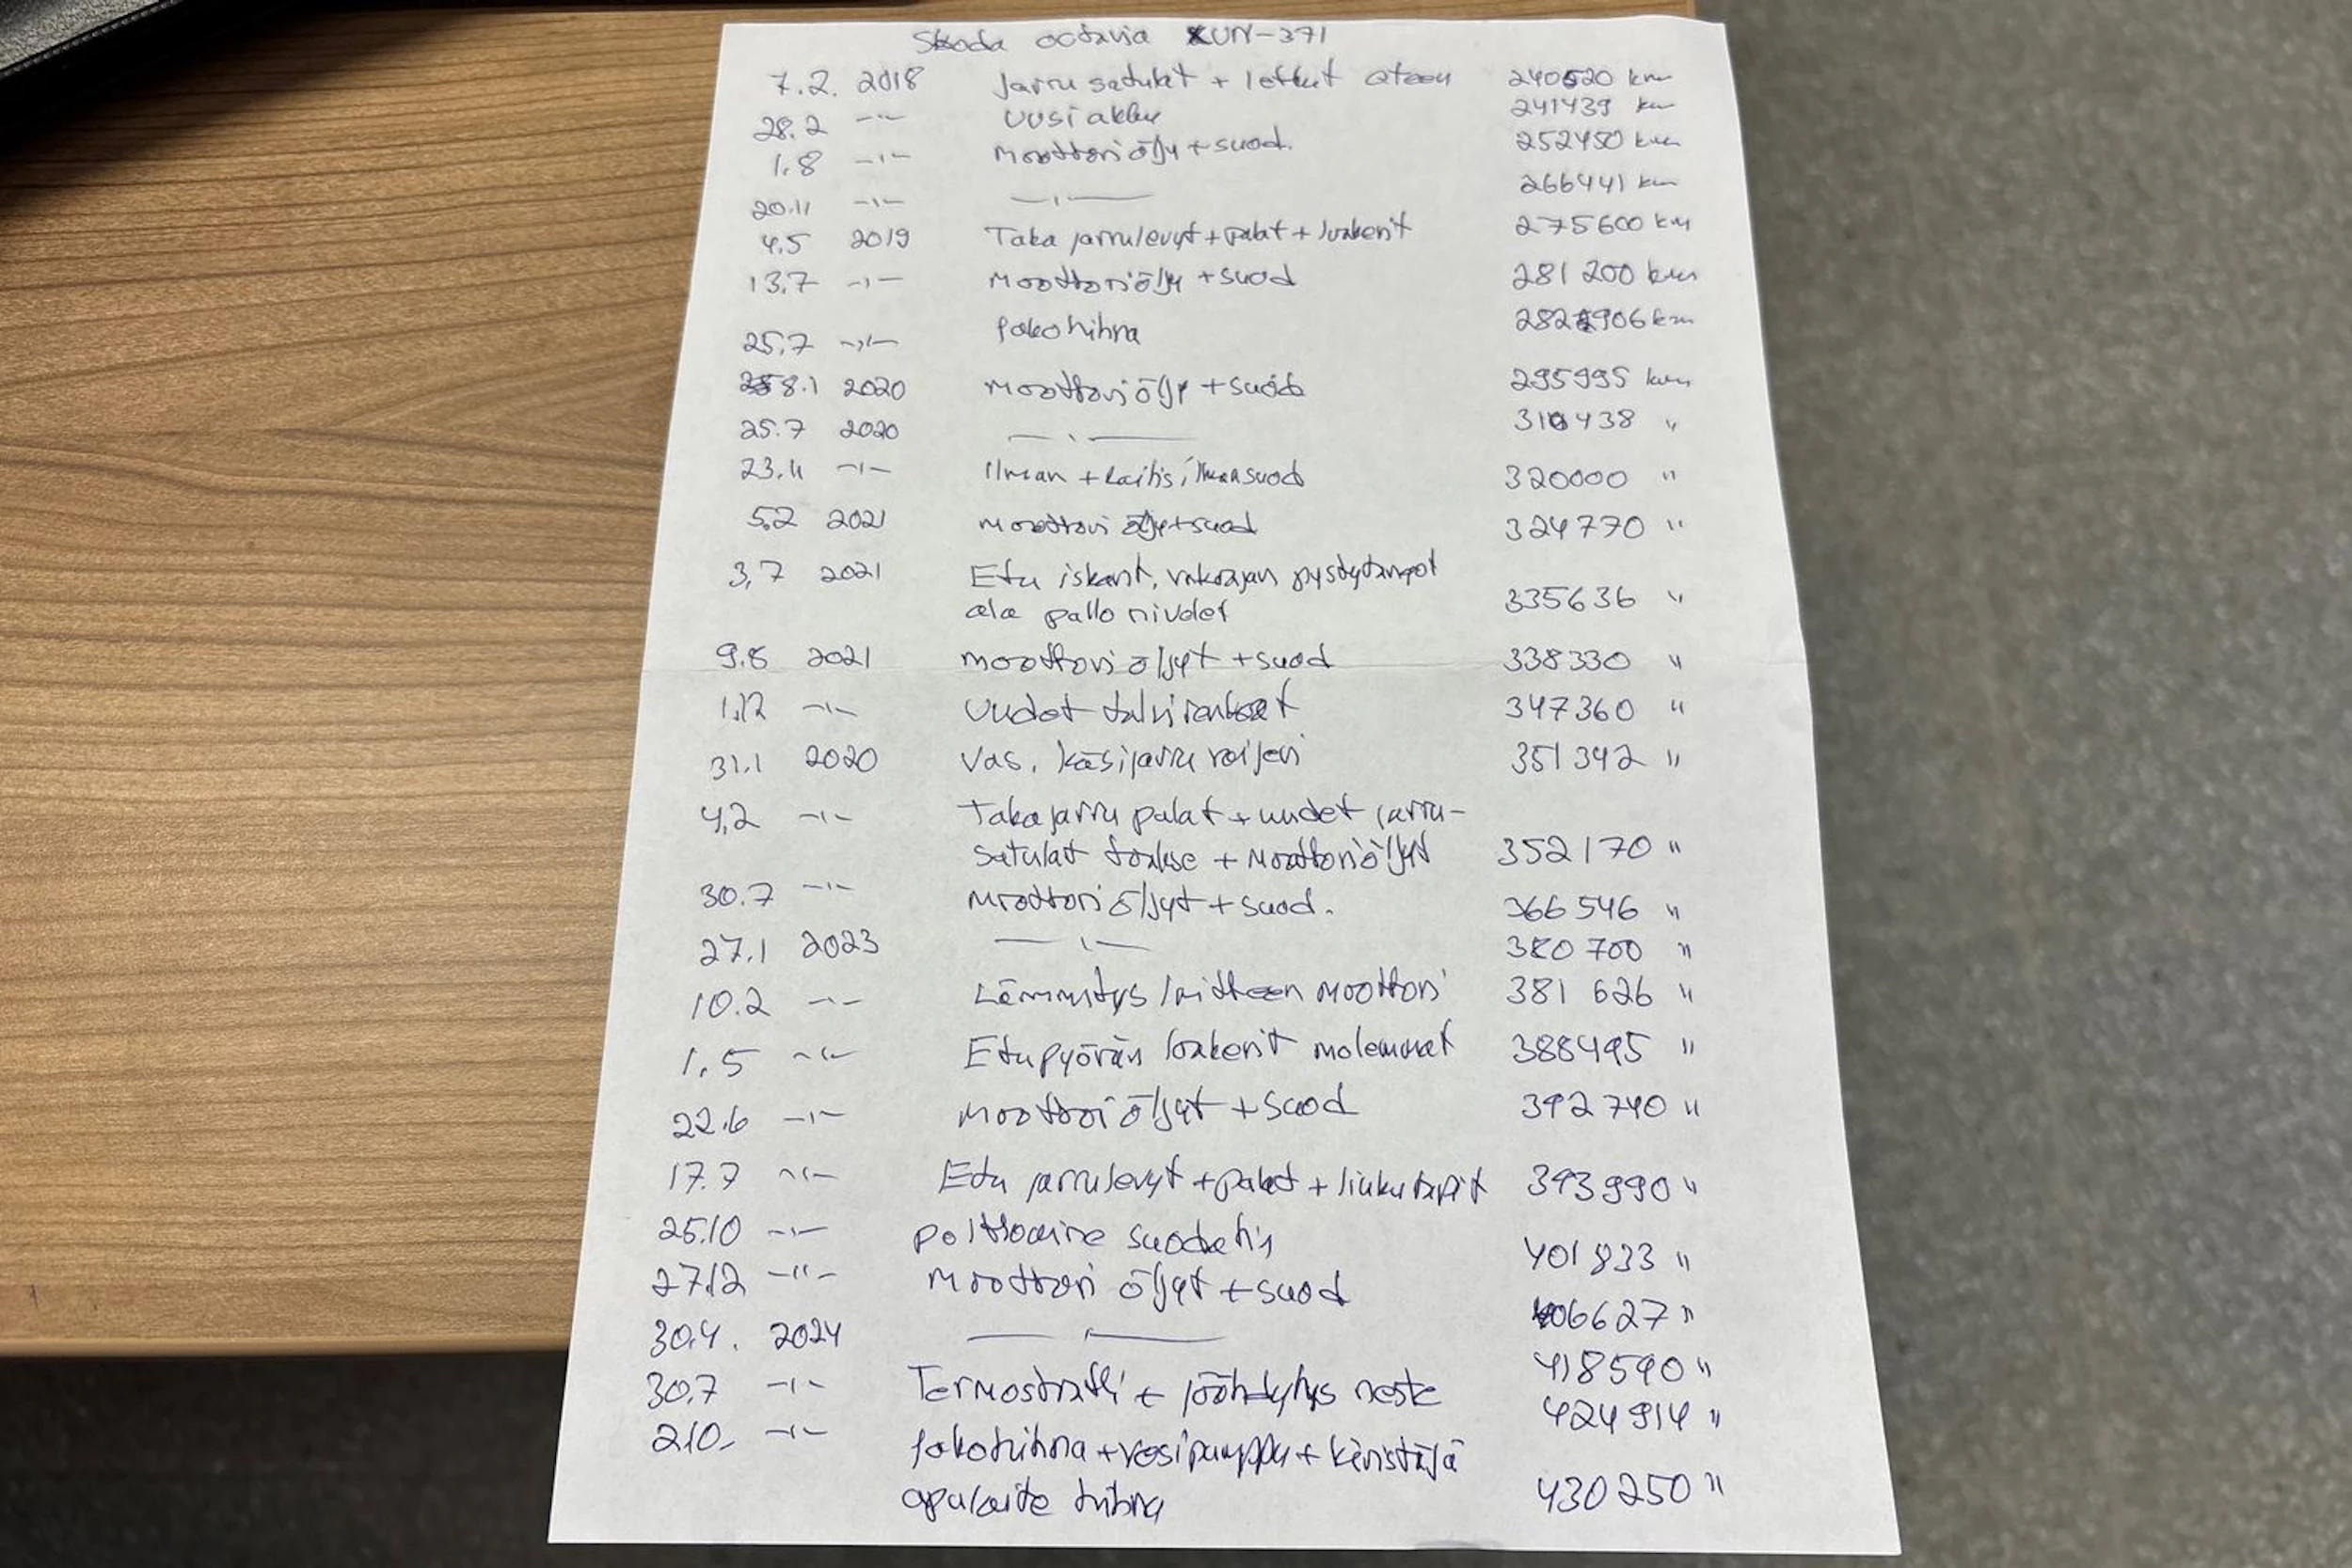 Skoda octavia XUN-371
7.2. 2018 Jarru satulat + letkut eteen 240520 km
28.2 -"- Uusi akku 241439 km
1.8 -"- Moottoriöljy + suod. 252450 km
20.11 -"- -"- 266441 km
4.5 2019 Taka jarrulevyt + palat + laakerit 275600 km
13.7 -"- Moottoriöljy + suod 281 200 km
25.7 -"- Jakohihna 282906 km
8.1 2020 Moottoriöljy + suod 295995 km
25.7 2020 -"- 310438 "
23.11 -"- Ilman + raitis ilmasuod 320000 "
5.2 2021 Moottori öljy+suod 324770 "
3,7 2021 Etu iskarit, vakaajan pystytangot
ala pallo nivelet 335636 "
9.8 2021 moottori öljyt + suod 338330 "
1.12 -"- Uudet talvirenkaat 347360 "
31.1 2020 Vas. käsijarru vaijeri 351342 "
4,2 -"- Takajarru palat + uudet jarru-
satulat taakse + Moottoriöljyt 352170 "
30.7 -"- Moottori öljyt + suod. 366546 "
27.1 2023 -"- 380 700 "
10.2 -"- Lämmitys laitteen moottori 381 626 "
1.5 -"- Etupyörän laakerit molemmat 388495 "
22.6 -"- Moottori öljyt + suod 392740 "
17.7 -"- Etu jarrulevyt + palat + liukutapit 393990 "
25.10 -"- polttoaine suodatin 401833 "
27.12 -"- Moottori öljyt + suod 406627 "
30.4. 2024 -"- 418590 "
30.7 -"- Termostatti + jäähdytys neste 424914 "
2.10. -"- Jakohihna + vesipumppu + kiristäjä
apulaite hihna 430250 "